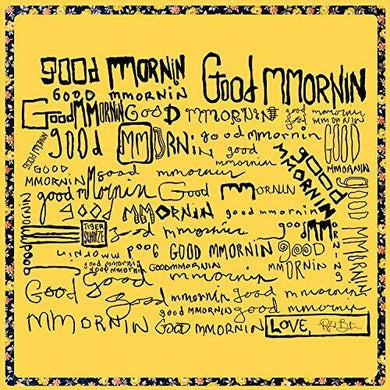 good mmornin Good mmornin
GOOD mmornin
GoodMMORNIN GooD mmornin good mmorner
good MMORNIN good mmornin GOOD
good mmornin
good
mmornin
good
MMORNIN
GOOD
MMORNIN
MMORNINGood mmornin
good mmornin Good mmornin
good MMORNIN good mmornin
TIGER
SHARZE
good mmornin
GOOD MMORNIN good
good mmornin
GOODMMORNIN good mmornin
Good good mmornin
Good good mmornin
MMORNIN GOOD MMORNIN
LOVE,